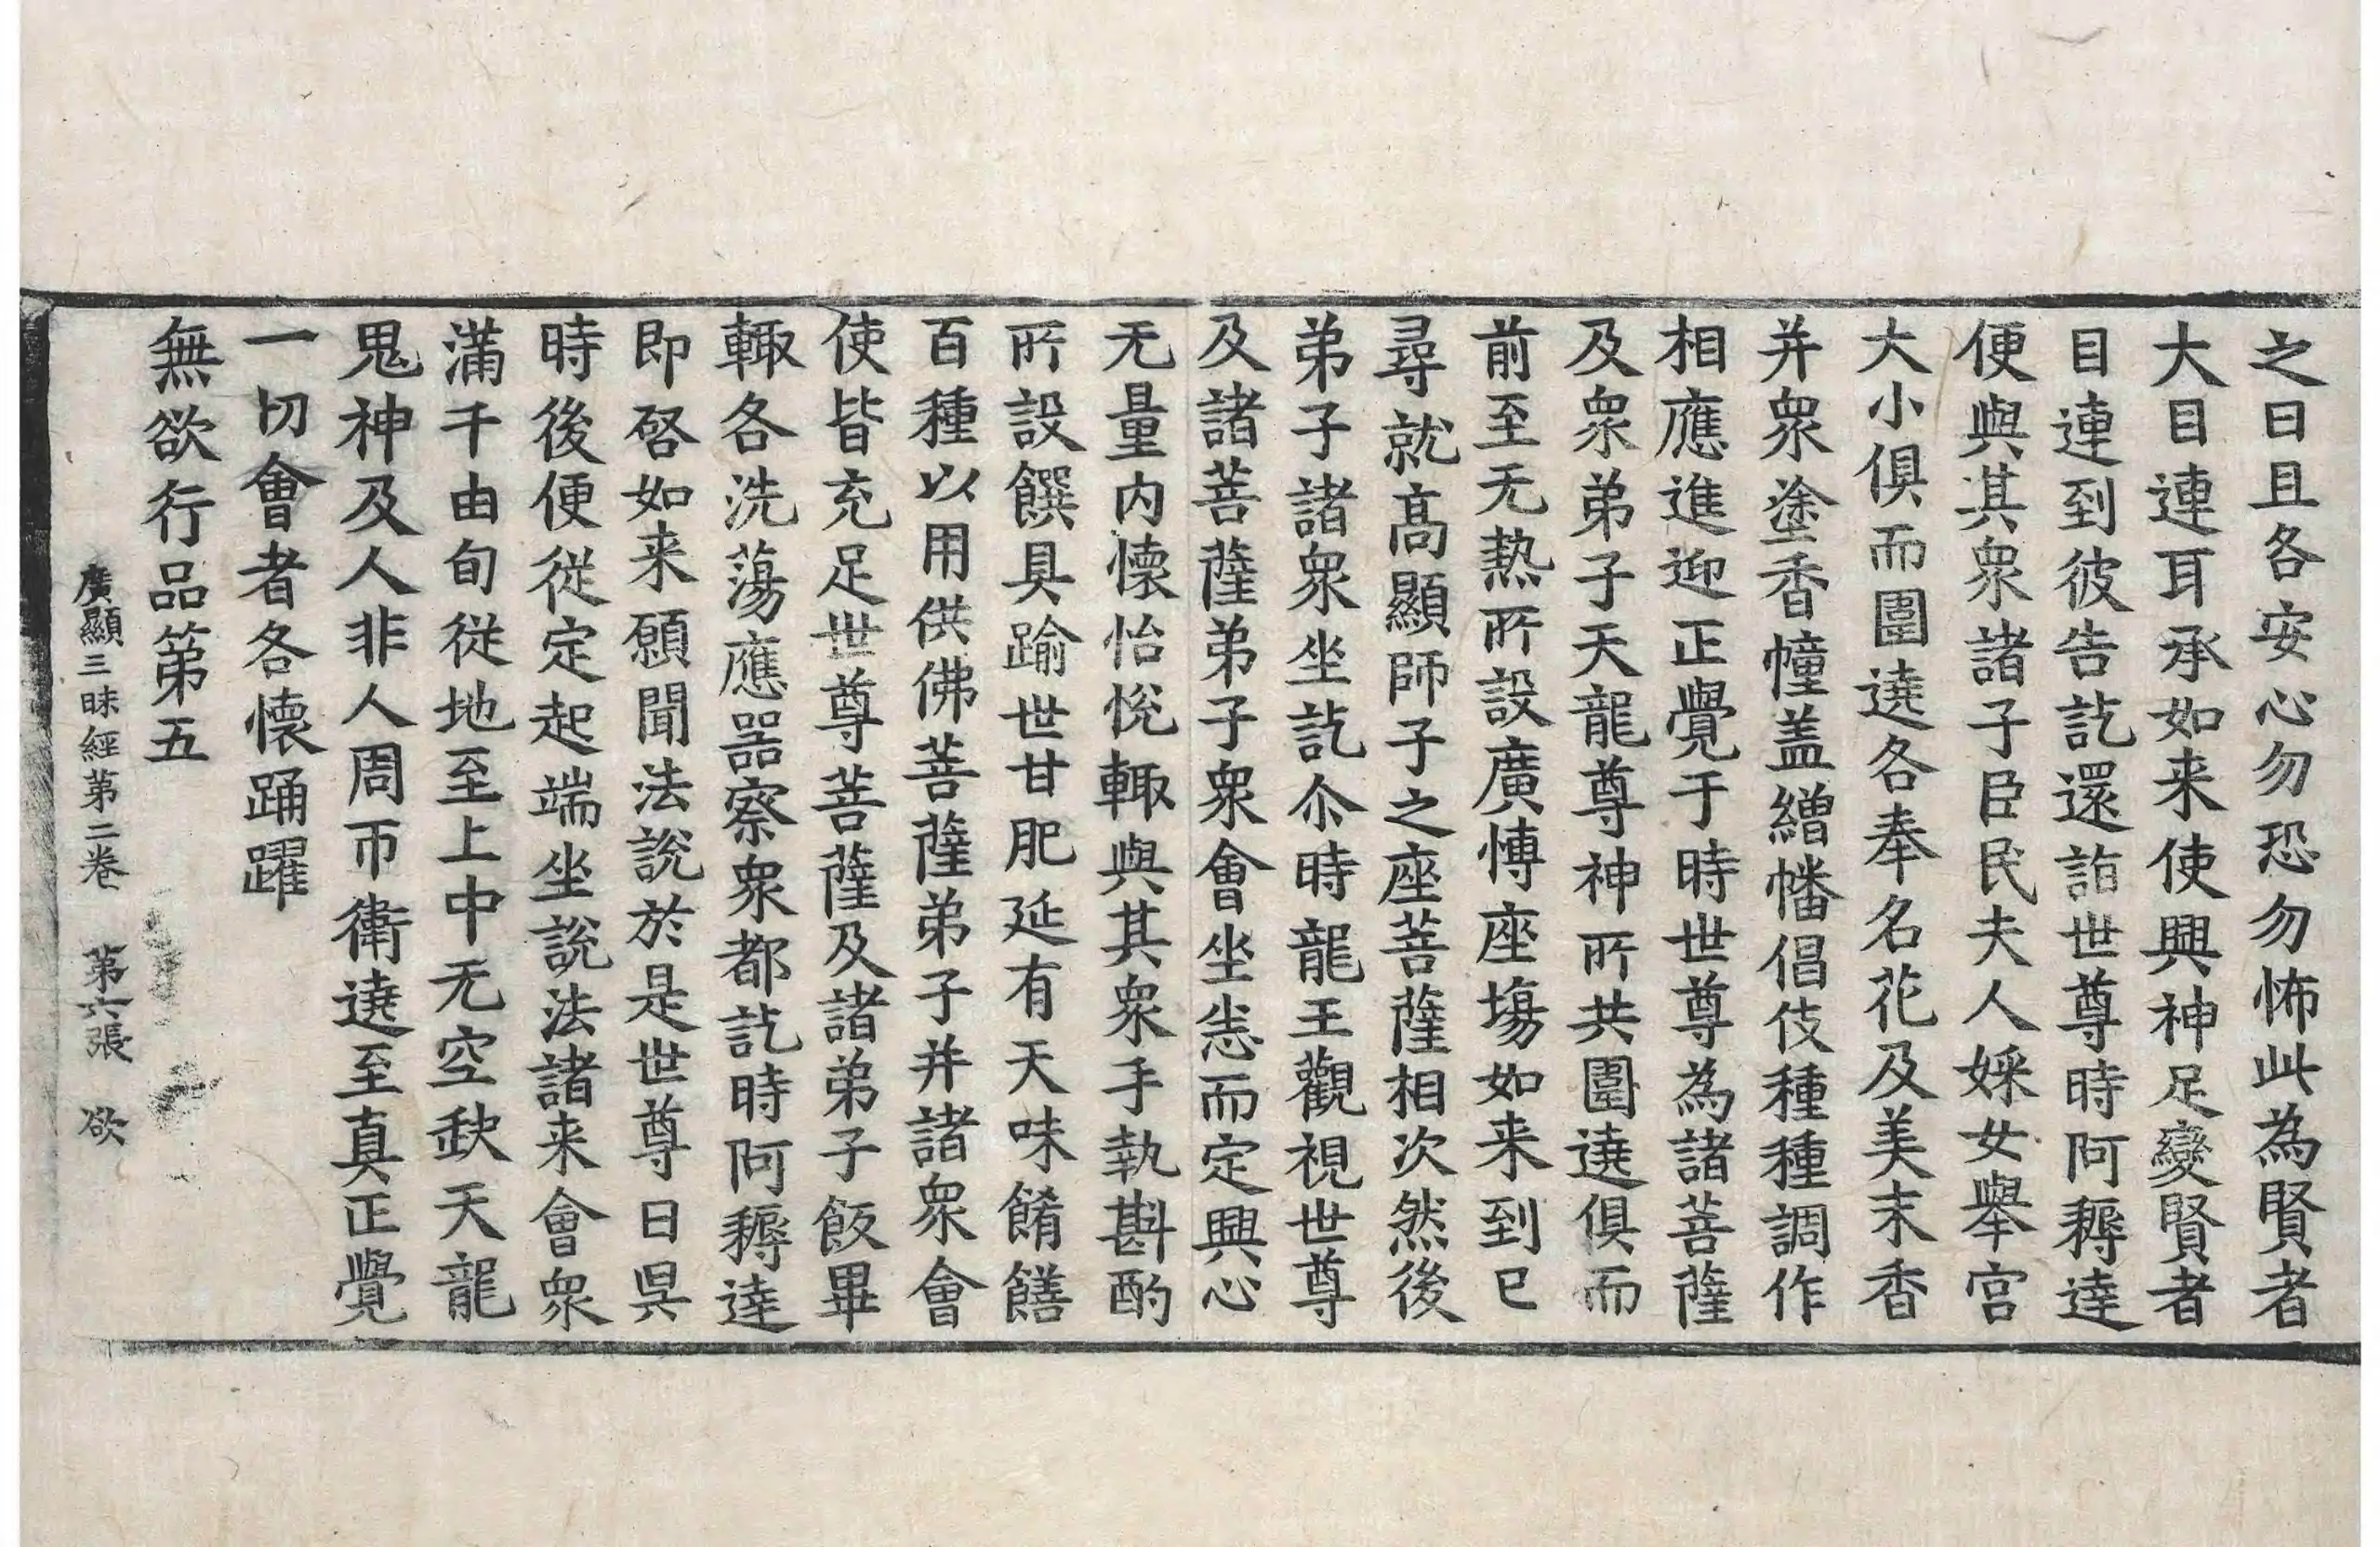 之曰且各安心勿恐勿怖此為賢者
大目連耳承如来使興神足變賢者
目連到彼告訖還詣世尊時阿耨達
便與其衆諸子臣民夫人婇女舉宮
大小俱而圍遶各奉名花及美末香
并衆塗香幢盖繒幡倡伎種種調作
相應進迎正覺于時世尊為諸菩薩
及衆弟子天龍尊神所共圍遶俱而
前至无熱所設廣博座塲如来到已
尋就高顯師子之座菩薩相次然後
弟子諸衆坐訖尒時龍王觀視世尊
及諸菩薩弟子衆會坐悉而定興心
无量内懷怡悅輙與其衆手執斟酌
所設饌具踰世甘肥延有天味餚饍
百種以用供佛菩薩弟子并諸衆會
使皆充足世尊菩薩及諸弟子飯畢
輙各洗蕩應器察衆都訖時阿耨達
即啓如来願聞法說於是世尊日昃
時後便從定起端坐說法諸来會衆
滿千由旬從地至上中无空缺天龍
鬼神及人非人周帀衛遶至真正覺
一切會者各懷踊躍
無欲行品第五
廣顯三昧經第二卷　第六張　欲